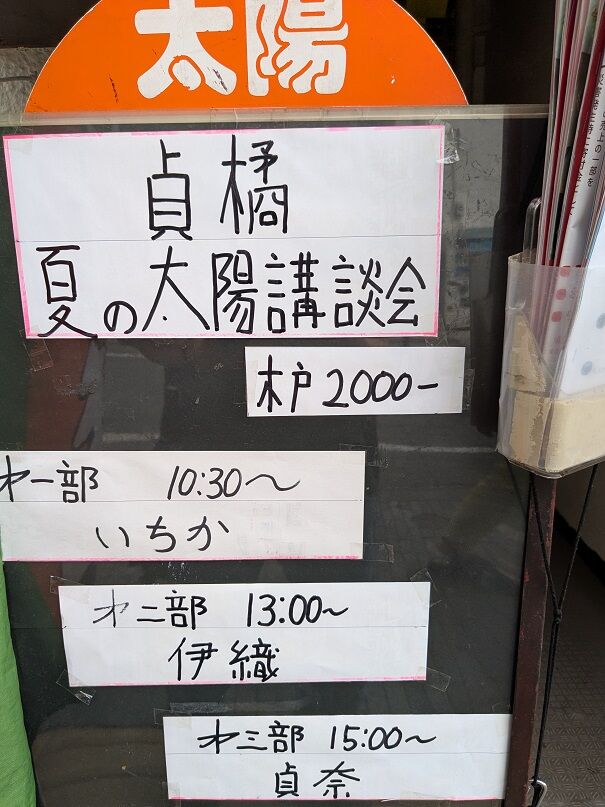 太陽
貞橘
夏の太陽講談会
木戸2000-
才一部 10:30～
いちか
才二部 13:00～
伊織
才三部 15:00～
貞奈